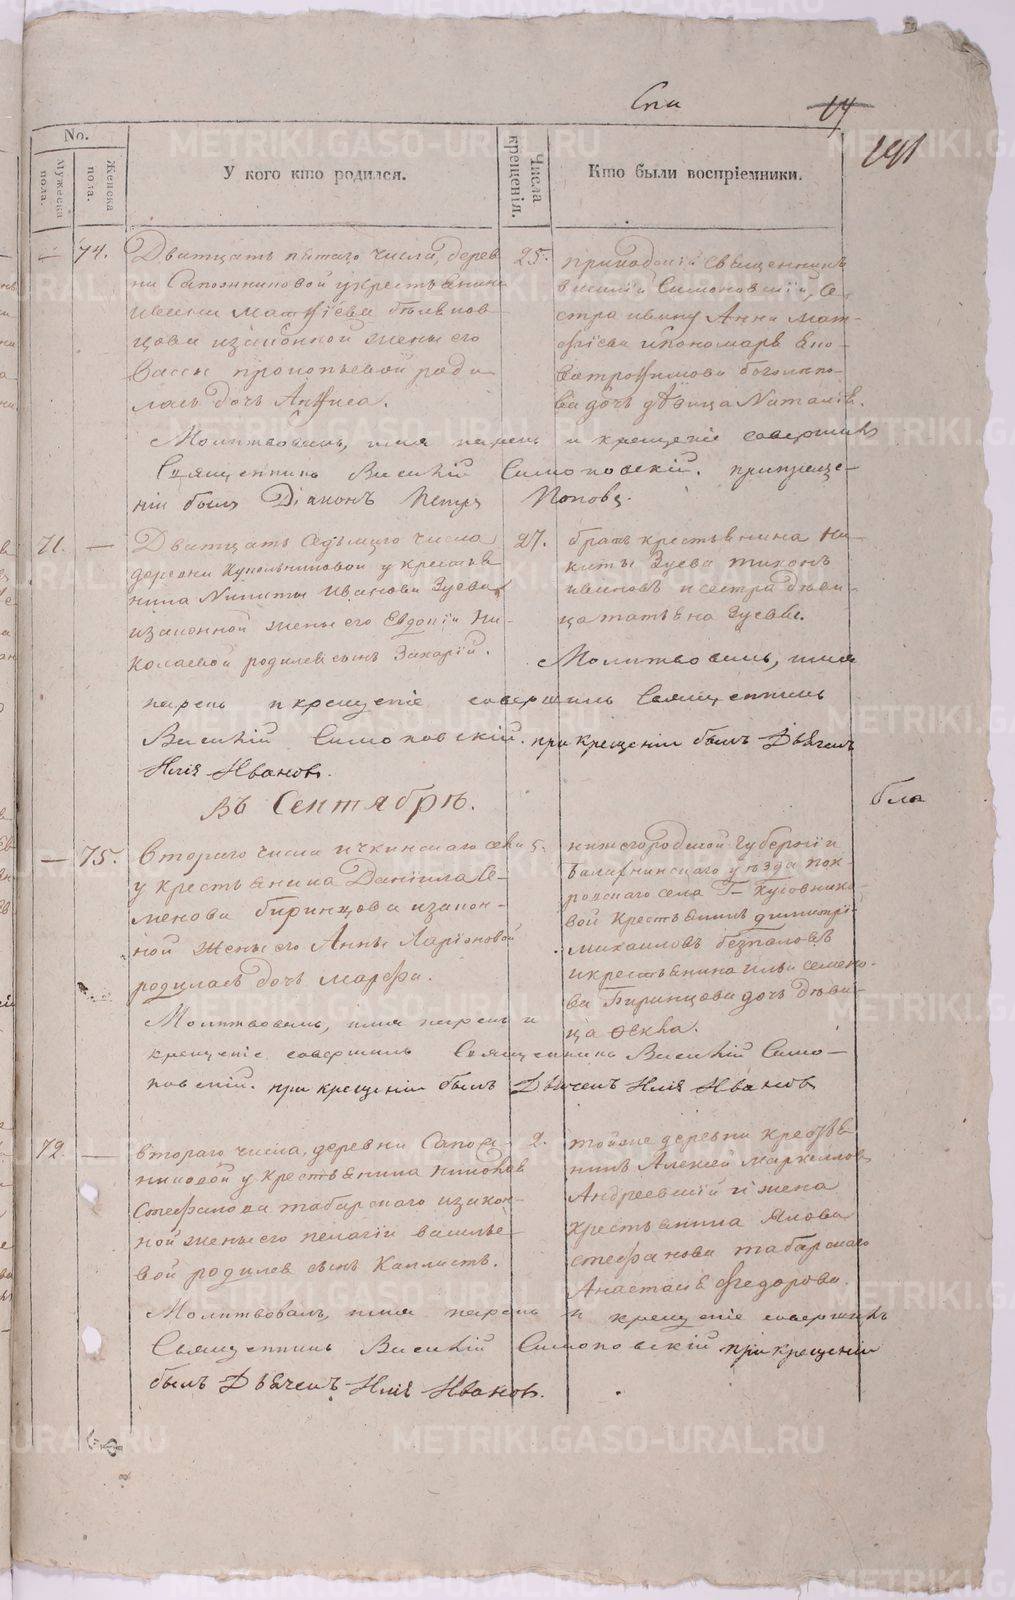 Спи
14
291
No.
Мужеска пола.
Женска пола.
У кого кто родился.
Числа крещенія.
Кто были воспріемники.
— 74. Дватцать пятаго числа, дерев
ни Сапожниковой у крестьянина
Ивана Матѳіева
цова изаконной жены его
Вассы Прокопьевой роди
лась дочь Анѳиса.
25.
приходскій священникъ
Василій Симоновскій, се
стра ивану Анна Мат-
ѳіева ипономаря
ва дочь дѣвица Наталія.
Молитвовалъ, имя нарекъ и крещеніе совершилъ
Священникъ Василій Симоновскій. прикреще-
ніи былъ Діаконъ Петръ Поповъ.
71. — Дватцать седьмаго числа
деревни у крестья
нина Никиты Иванова Зуева
изаконной жены его Евдокіи Ни-
колаевой родился сынъ Захарій.
27.
братъ крестьянина Ни-
киты Зуева Тихонъ
Ивановъ и сестра дѣви
ца татьяна Зуевы.
Молитвовалъ, имя
нарекъ и крещеніе совершилъ Священникъ
Василій Симоновскій. при крещеніи былъ Дьячекъ
Илія Ивановъ.
Въ Сентябрѣ.
бла
— 75. Втораго числа ичкинскаго села
у крестьянина Даніила Се-
менова Биринцова изакон-
ной жены его Анны Ларіоновой
родилась дочь марфа.
5.
нижегородской Губерніи
Балахнинскаго уѣзда пок
ровскаго села Г-
вой Крестьянинъ димитрій
михаиловъ безпаловъ
икрестьянина ильи семено-
ва Биринцова дочь дѣви-
ца Ѳекла.
Молитвовалъ, имя нарекъ и
крещеніе совершилъ Священникъ Василій Симо-
новскій. при крещеніи былъ Дьячекъ Илія Ивановъ
72. — втораго числа, деревни Сапож
никовой у крестьянина
Стефанова табарскаго изакон-
ной жены его пелагіи василье-
вой родился сынъ Каллистъ.
2.
тойже деревни крестья
нинъ Алексей Маркеловъ
Андреевскій и жена
крестьянина Якова
стефанова табарскаго
Анастасія Ѳедорова.
Молитвовалъ, имя нарекъ и крещеніе совершилъ
Священникъ Василій Симоновскій при крещеніи
былъ Дьячекъ Илія Ивановъ.